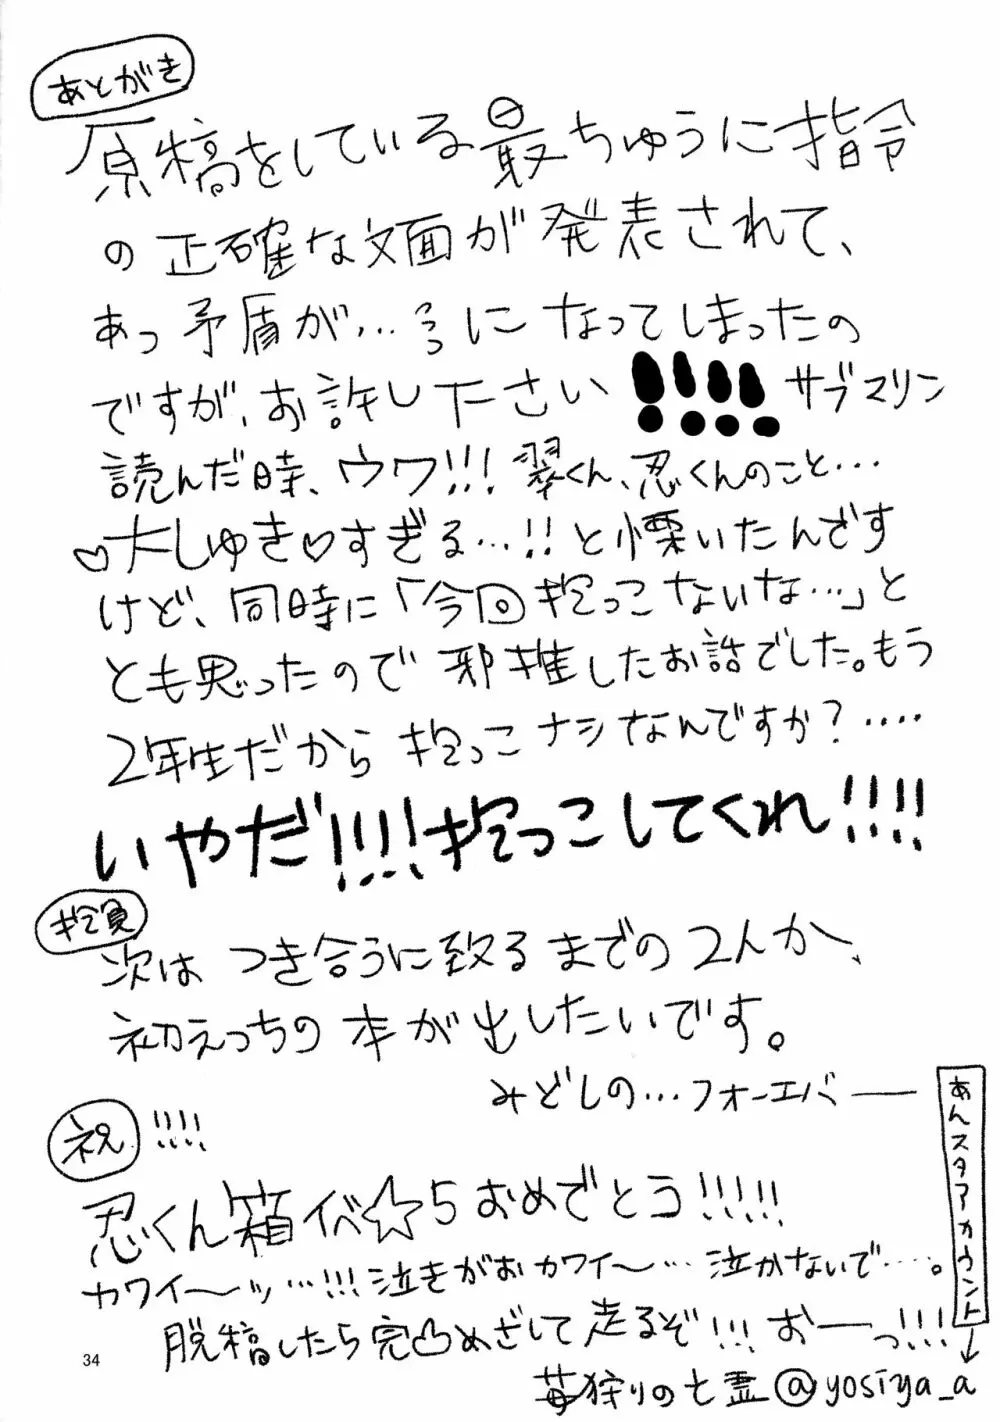 あとがき
原稿をしている最ちゅうに指令
の正確な文面が発表されて、
あっ矛盾が…っっになってしまったの
ですが、お許し下さい!!!!サブマリン
読んだ時、ウワ!!!翠くん、忍くんのこと…
♡大しゅき♡すぎる…!!と慄いたんです
けど、同時に「今回抱っこないな…」と
とも思ったので邪推したお話でした。もう
2年生だから抱っこナシなんですか?‥‥
いやだ!!!!抱っこしてくれ!!!!
抱負
次はつき合うに致るまでの2人か、
初えっちの本が出したいです。
みどしの…フォーエバー
祝!!!!
忍くん箱イベ☆5おめでとう!!!!!
カワイ〜ッ…!!!泣きがおカワイ〜…泣かないで……。
脱稿したら完凸めざして走るぞ!!!おーっ!!!
あんスタアカウント→
34
苺狩りの七霊@yosiya_a